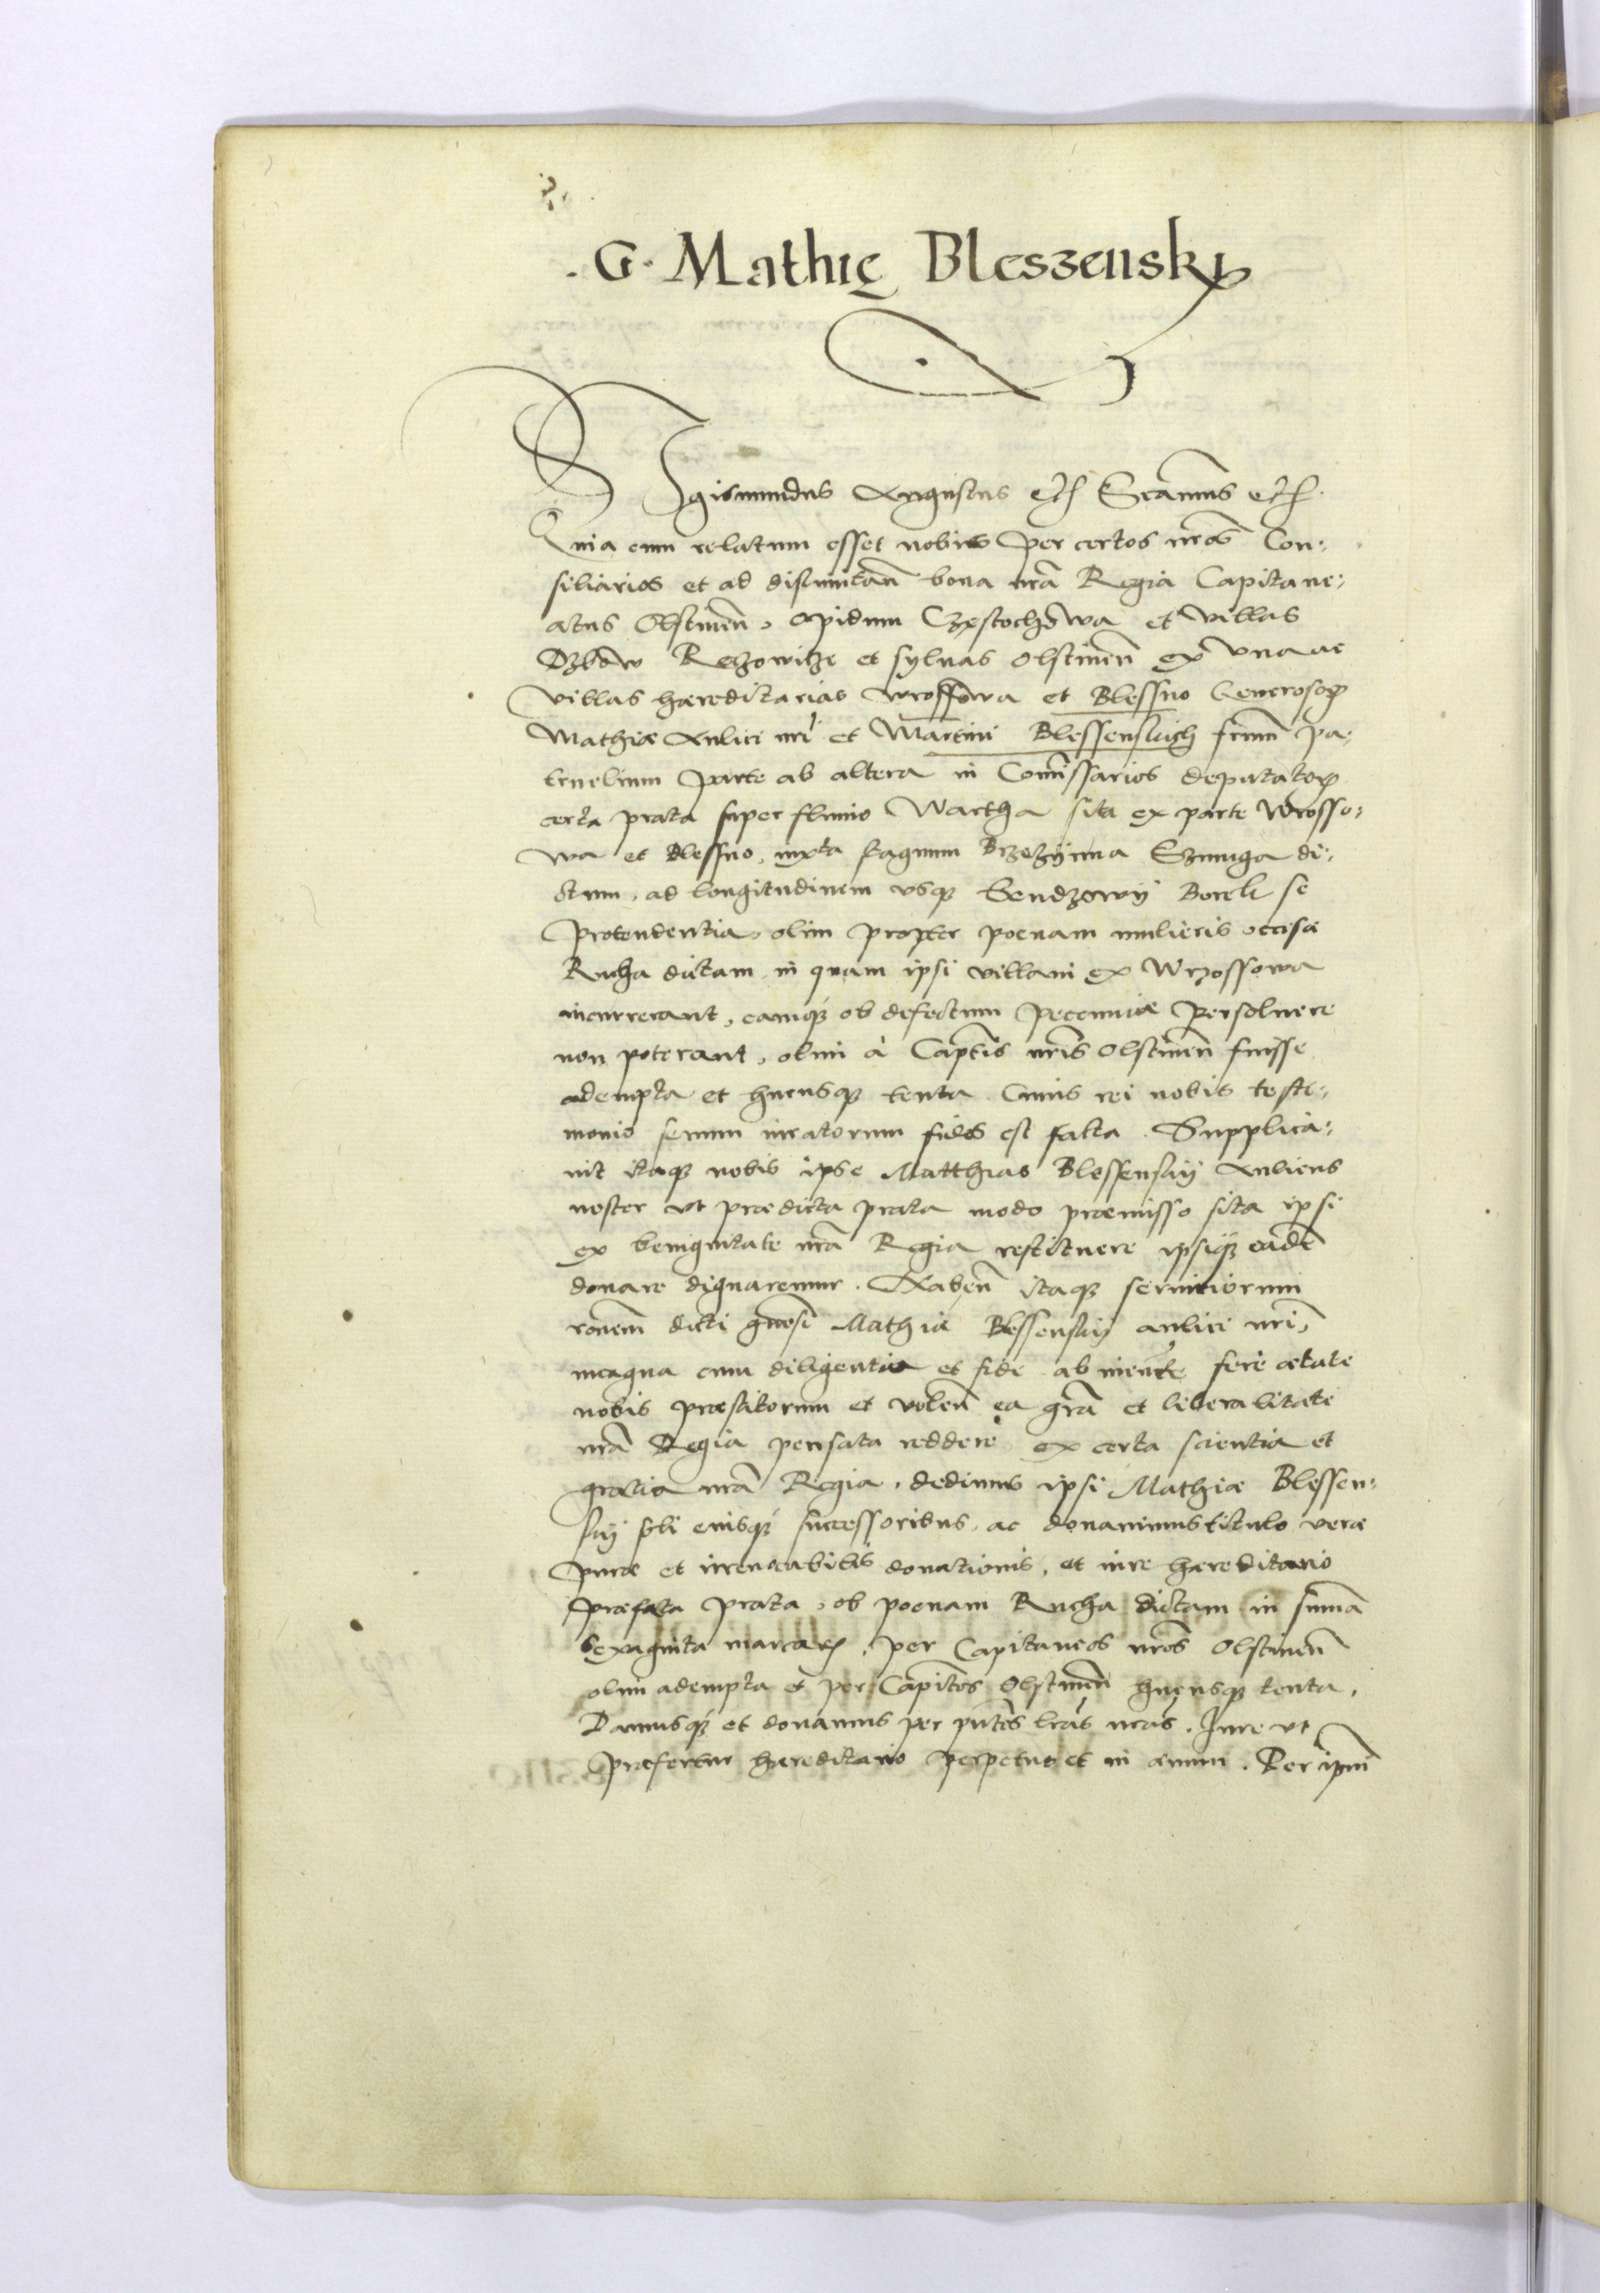 G. Mathię Bleszensky
Sigismundus Augustus etc Significamus etc.
Quia cum relatum esset nobis per certos nros Con-
siliarios et ad dislimitan bona nrã Regia Capitane-
atus Olstinen. opidum Czestochowa et villas
Dzbow Rezowitze et syluas Olstinen ex vna ac
villas haereditarias Wrossowa et Blessno Generosorum
Mathiæ Aulici nri et Martini Blessenskich frum pa-
truelium parte ab altera in Comissarios deputatorum
certa prata super fluuio Wartha sita ex parte Wrosso-
wa et Blessno, iuxta stagnum Brzezijnna Szmuga di-
ctum, ad longitudinem vsque Sendzowij Borek se
protendentia, olim propter poenam mulieris occisæ
Rucha dictam, in quam ipsi villani ex Wrzossowa
incurrerant, eamque ob defectum pecuniæ persoluere
non poterant, olim à Captis nris Olstinen fuisse
adempta et hucusque tenta. Cuius rei nobis testi-
monio senum iuratorum fides est facta. Supplica-
uit itaque nobis ipse Matthias Blessenskij Aulicus
noster vt prædicta prata modo præmisso sita ipsi
ex benignitate nrã Regia restituere ipsique eadē
donare dignaremur. Haben itaque seruitiorum
ronem dicti gnosi Mathiæ Blessenskij aulici nri,
magna cum diligentia et fide ab ineunte fere ætate
nobis præstitorum et volen ea grã et liberalitate
nrã Regia pensata reddere, ex certa scientia et
gratia nrã Regia, dedimus ipsi Mathiæ Blessen-
skij soli eiusque successoribus, ac donauimus titulo veræ
puræ et irreuocabilis donationis, et iure haereditario
præfata prata, ob poenam Rucha dictam in sumã
sexaginta marcarum, per Capitaneos nros Olstinen
olim adempta et per Capitneos Olstinen hucusque tenta,
Damusque et donamus per pñtes lras nras. Iure vt
præfertur haereditario perpetuo et in æuum. Per ipm